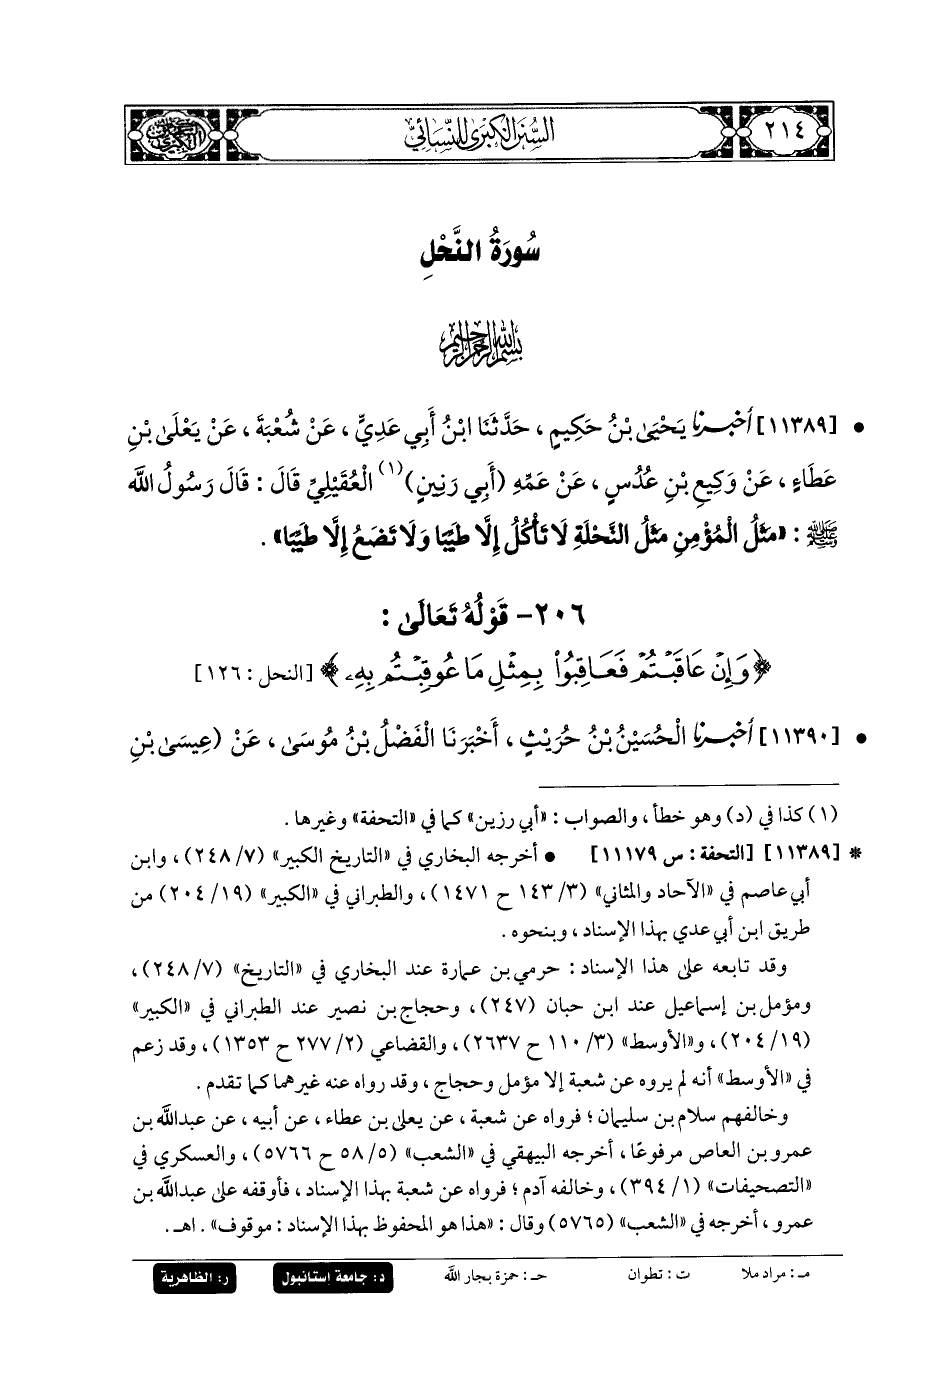 ٢١٤
السنن الكبرى للنسائي
سُورَةُ النَّحْلِ
بسم الله الرحمن الرحيم
• [١١٣٨٩] أَخْبَرَنَا يَحْيَىٰ بْنُ حَكِيمٍ ، حَدَّثَنَا ابْنُ أَبِي عَدِيٍّ ، عَنْ شُعْبَةَ ، عَنْ يَعْلَىٰ بْنِ
عَطَاءٍ ، عَنْ وَكِيعِ بْنِ عُدُسٍ ، عَنْ عَمِّهِ (أَبِي رَنِينٍ)(١) الْعُقَيْلِيِّ قَالَ : قَالَ رَسُولُ اللَّه
ﷺ : «مَثَلُ الْمُؤْمِنِ مَثَلُ النَّحْلَةِ لَا تَأْكُلُ إِلَّا طَيِّبًا وَلَا تَضَعُ إِلَّا طَيِّبًا» .
٢٠٦- قَوْلُهُ تَعَالَىٰ :
﴿وَإِنْ عَاقَبْتُمْ فَعَاقِبُوا۟ بِمِثْلِ مَا عُوقِبْتُم بِهِۦ﴾ [النحل : ١٢٦]
• [١١٣٩٠] أَخْبَرَنَا الْحُسَيْنُ بْنُ حُرَيْثٍ ، أَخْبَرَنَا الْفَضْلُ بْنُ مُوسَىٰ ، عَنْ (عِيسَىٰ بْنِ
(١) كذا في (د) وهو خطأ ، والصواب : «أبي رزين» كما في «التحفة» وغيرها .
* [١١٣٨٩] [التحفة : س ١١١٧٩] • أخرجه البخاري في «التاريخ الكبير» (٧/ ٢٤٨) ، وابن
أبي عاصم في «الآحاد والمثاني» (٣/ ١٤٣ ح ١٤٧١) ، والطبراني في «الكبير» (١٩/ ٢٠٤) من
طريق ابن أبي عدي بهذا الإسناد ، وبنحوه .
وقد تابعه على هذا الإسناد : حرمي بن عمارة عند البخاري في «التاريخ» (٧/ ٢٤٨) ،
ومؤمل بن إسماعيل عند ابن حبان (٢٤٧) ، وحجاج بن نصير عند الطبراني في «الكبير»
(١٩/ ٢٠٤) ، و«الأوسط» (٣/ ١١٠ ح ٢٦٣٧) ، والقضاعي (٢/ ٢٧٧ ح ١٣٥٣) ، وقد زعم
في «الأوسط» أنه لم يروه عن شعبة إلا مؤمل وحجاج ، وقد رواه عنه غيرهما كما تقدم .
وخالفهم سلام بن سليمان ؛ فرواه عن شعبة ، عن يعلى بن عطاء ، عن أبيه ، عن عبدالله بن
عمرو بن العاص مرفوعًا ، أخرجه البيهقي في «الشعب» (٥/ ٥٨ ح ٥٧٦٦) ، والعسكري في
«التصحيفات» (١/ ٣٩٤) ، وخالفه آدم ؛ فرواه عن شعبة بهذا الإسناد ، فأوقفه على عبدالله بن
عمرو ، أخرجه في «الشعب» (٥٧٦٥) وقال : «هذا هو المحفوظ بهذا الإسناد : موقوف» . اهـ .
مـ : مراد ملا ت : تطوان حـ : حمزة بجار الله د : جامعة إستانبول ر : الظاهرية